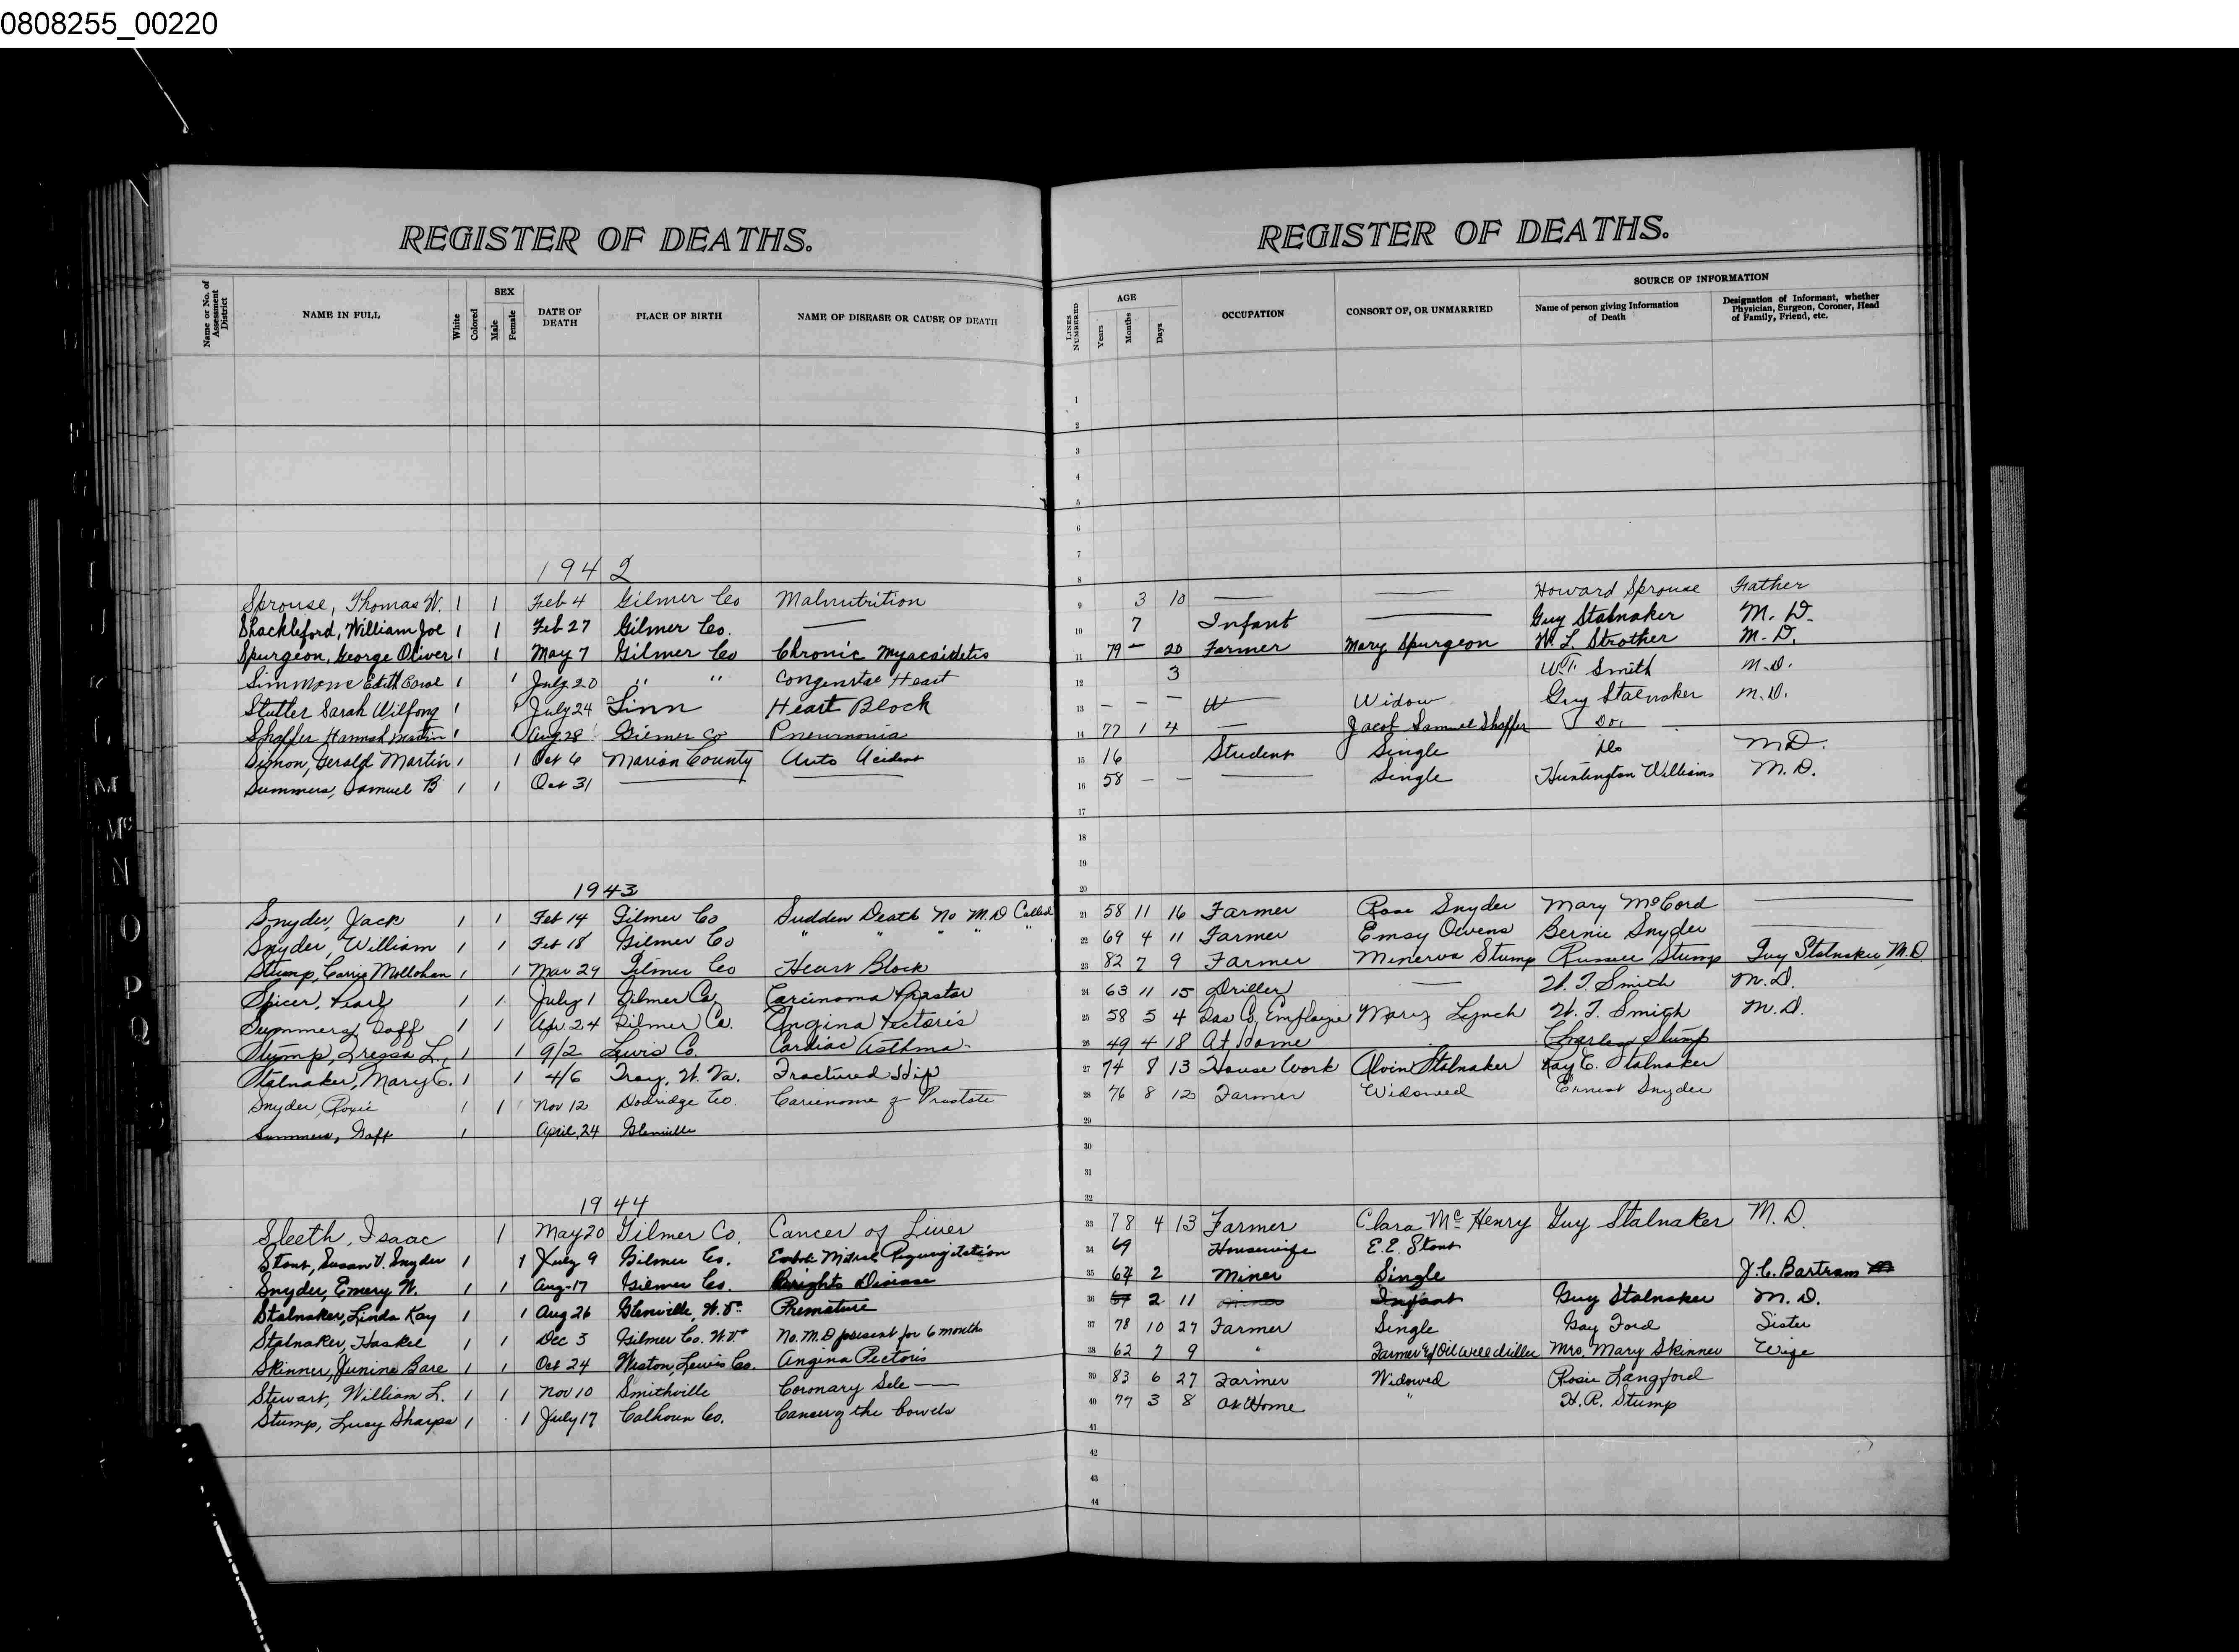 0808255_00220
REGISTER OF DEATHS.
Name or No. of Assessment District
NAME IN FULL
White
Colored
SEX
Male
Female
DATE OF DEATH
PLACE OF BIRTH
NAME OF DISEASE OR CAUSE OF DEATH
1942
Sprouse, Thomas W. 1 1 Feb 4 Gilmer Co Malnutrition
Shackleford, William Joe 1 1 Feb 27 Gilmer Co. —
Spurgeon, George Oliver 1 1 May 7 Gilmer Co Chronic Myacaidetis
Simmons Edith Carol 1 1 July 20 " " Congenital Heart
Stutler Sarah Wilfong 1 1 July 24 Linn Heart Block
Shaffer Hannah Martin 1 Aug 28 Gilmer Co Pneumonia
Simon, Gerald Martin 1 1 Oct 6 Marion County Auto Acident
Summers, Samuel B 1 1 Oct 31 — —
1943
Snyder, Jack 1 1 Feb 14 Gilmer Co Sudden Death No M.D Called
Snyder, William 1 1 Feb 18 Gilmer Co " " " " "
Stump, Carrie Mollohan 1 1 Mar 29 Gilmer Co Heart Block
Spicer, Pearl 1 1 July 1 Gilmer Co. Carcinoma Prostar
Summers, Goff 1 1 Apr. 24 Gilmer Co. Angina Pectoris
Stump, Dressa L., 1 1 9/2 Lewis Co. Cardiac Asthma
Stalnaker, Mary E. 1 1 4/6 Troy, W. Va. Fractured Hip
Snyder, Roxie 1 1 Nov 12 Dodridge Co. Carienome of Prostate
Summers, Goff 1 April, 24 Glenville
1944
Sleeth, Isaac 1 May 20 Gilmer Co. Cancer of Liver
Stout, Susan V. Snyder 1 1 July 9 Gilmer Co. Mitral Regurgitation
Snyder, Emery W. 1 1 Aug-17 Gilmer Co. Brights Disease
Stalnaker, Linda Kay 1 1 Aug 26 Glenville, W. Va Premature
Stalnaker, Haskel 1 1 Dec 3 Gilmer Co. W. Va No. M.D present for 6 months
Skinner, Junina Bare 1 1 Oct 24 Weston, Lewis Co. Angina Pectoris
Stewart, William L. 1 1 Nov 10 Smithville Coronary Scle —
Stump, Lucy Sharps 1 1 July 17 Calhoun Co. Cancer of the bowels
REGISTER OF DEATHS.
LINES NUMBERED
AGE
Years
Months
Days
OCCUPATION
CONSORT OF, OR UNMARRIED
SOURCE OF INFORMATION
Name of person giving Information of Death
Designation of Informant, whether Physician, Surgeon, Coroner, Head of Family, Friend, etc.
1
2
3
4
5
6
7
8
9 3 10 — — Howard Sprouse Father
10 7 Infant — Guy Stalnaker M. D.
11 79 — 20 Farmer Mary Spurgeon W. L. Strother M. D.
12 3 W.T. Smith M. D.
13 — — — W Widow Guy Stalnaker M. D.
14 77 1 4 — Jacob Samuel Shaffer Do.
15 16 Student Single Do M D.
16 58 — — — Single Huntington Williams M. D.
17
18
19
20
21 58 11 16 Farmer Rose Snyder Mary McCord —
22 69 4 11 Farmer Emsy Owens Bernie Snyder —
23 82 7 9 Farmer Minerva Stump Russell Stump Guy Stalnaker, M. D.
24 63 11 15 Driller — W. T. Smith M. D.
25 58 5 4 Gas Co. Employee Mary Lynch W. T. Smith M. D.
26 49 4 18 At Home Charles Stump
27 74 8 13 House Work Alvin Stalnaker Ray C. Stalnaker
28 76 8 12 Farmer Widowed Ernest Snyder
29
30
31
32
33 78 4 13 Farmer Clara McHenry Guy Stalnaker M. D.
34 69 Housewife E. E. Stout
35 64 2 Miner Single J. C. Bartram
36 2 11 Infant Guy Stalnaker M. D.
37 78 10 27 Farmer Single Gay Ford Sister
38 62 7 9 " Farmer & Oil Well driller Mrs. Mary Skinner Wife
39 83 6 27 Farmer Widowed Rosie Langford
40 77 3 8 At Home " H. R. Stump
41
42
43
44
M
Mc
N
O
P
Q